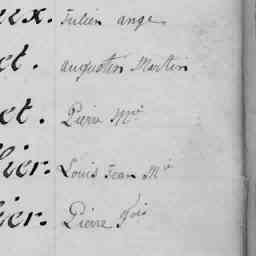 eux. Julien ange
et. augustin Martin
et. Pierre Mie
lier. Louis Jean Mie
lier. Pierre Fois